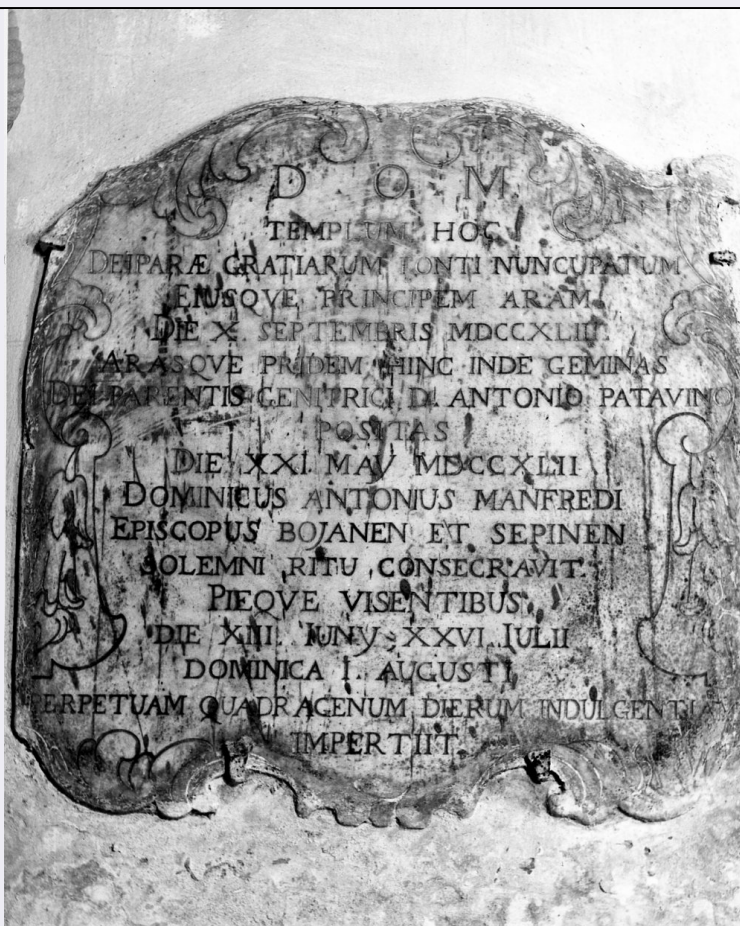 D O M
TEMPLUM HOC
DEIPARÆ GRATIARUM FONTI NUNCUPATUM
EIUSQVE PRINCIPEM ARAM
DIE X SEPTEMBRIS
ARASQVE PRIDEM HINC INDE GEMINAS
DEI PARENTIS GENITRICI D. ANTONIO PATAVINO
POSITAS
DIE XXI MAY MDCCXLII
DOMINICUS ANTONIUS MANFREDI
EPISCOPUS BOJANEN ET SEPINEN
SOLEMNI RITU CONSECRAVIT
PIEQVE VISENTIBUS
DIE XIII IUNY XXVI IULII
DOMINICA I. AUGUSTI
PERPETUAM QUADRAGENUM DIERUM
IMPERTIIT